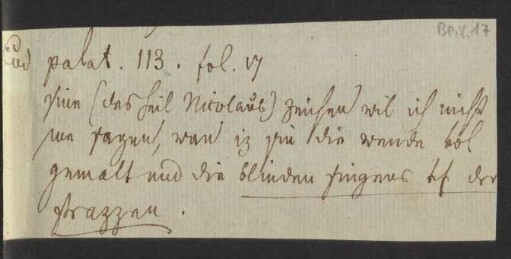 Beil. 17
Cod palat. 113. fol. 17
sine (des heil Nicolaus) zeichen wil ich nicht
me sagen, wan iz sin die wende vol
gemalt und die blinden singens uf der
strazzen.